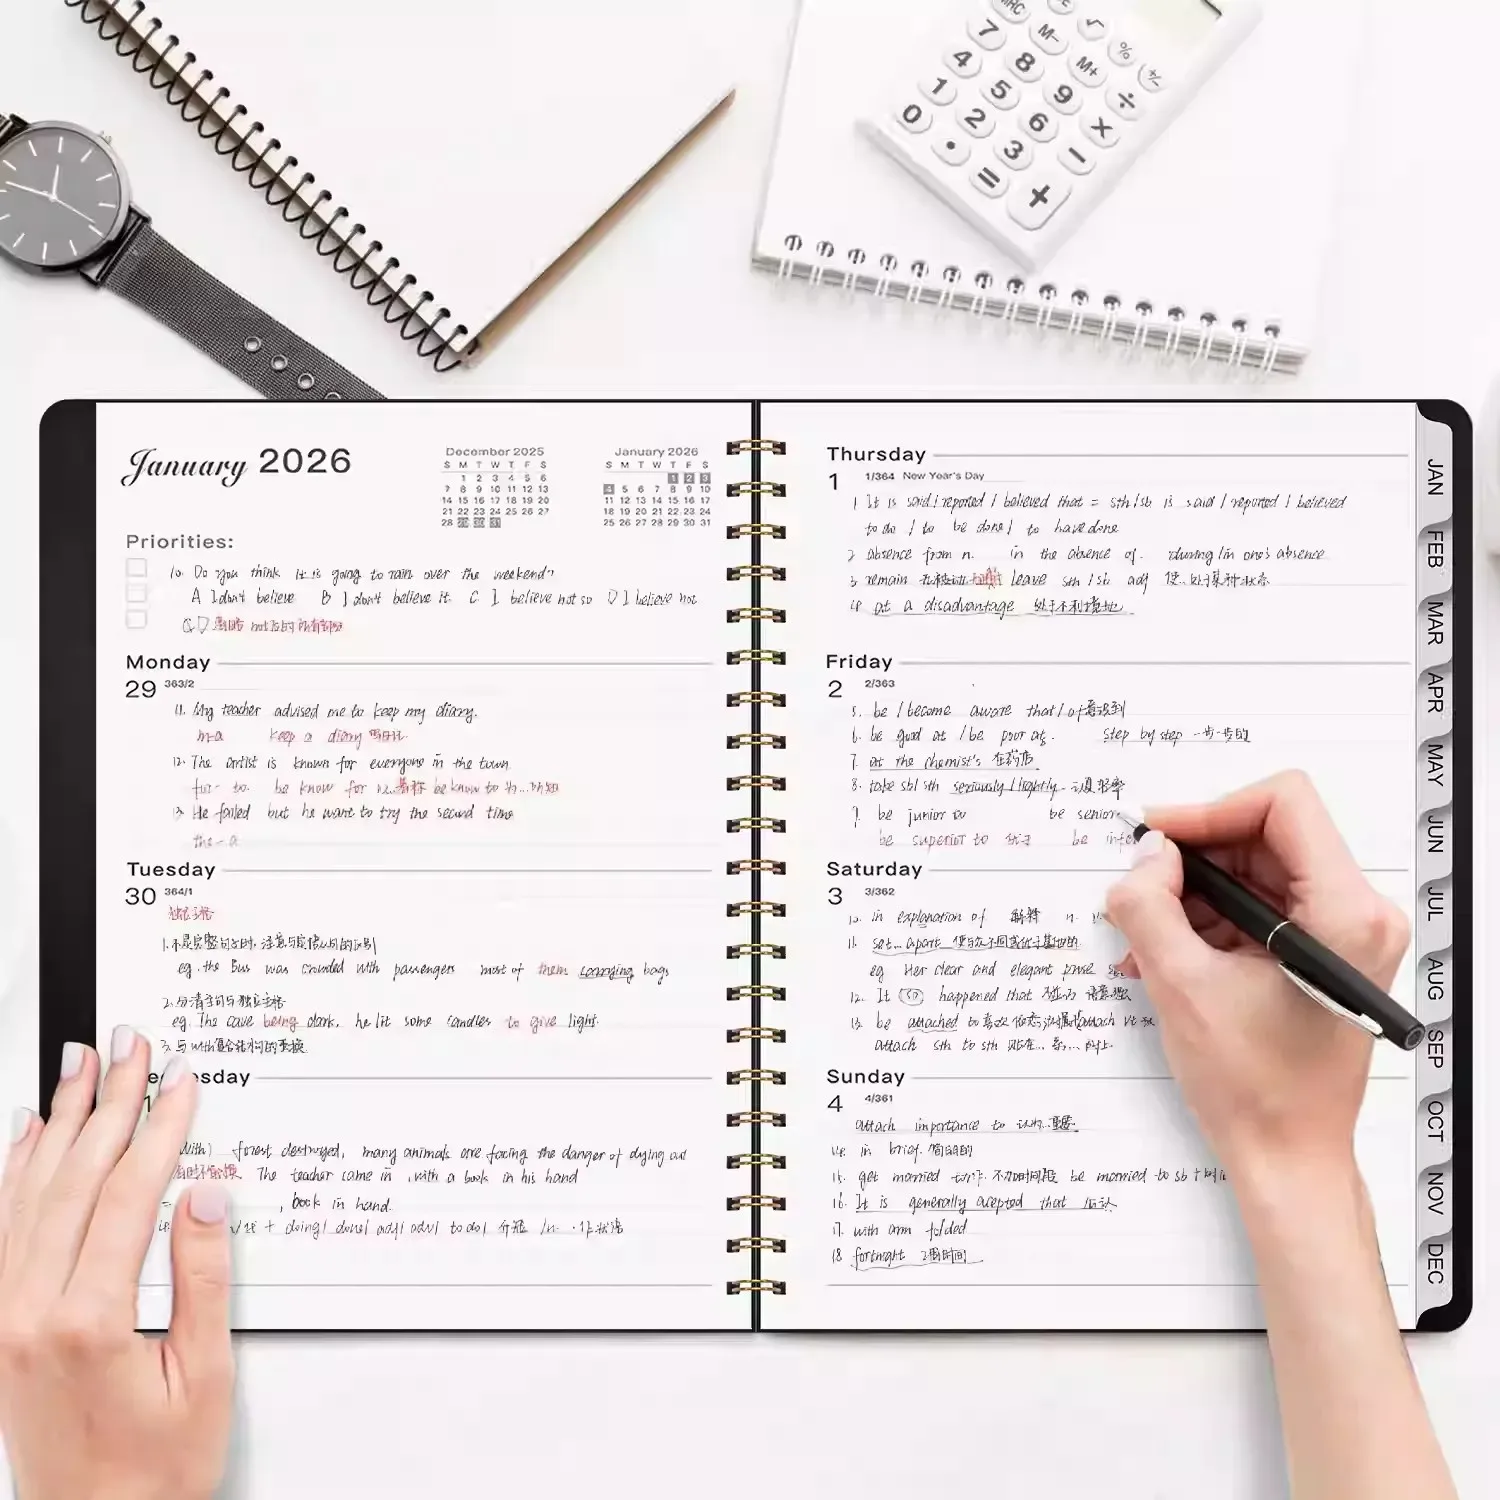 MRC M- √ % +/-
7 8 9 M+ ÷
4 5 6 ×
1 2 3 −
0 . = +
January 2026
December 2025
S M T W T F S
1 2 3 4 5 6
7 8 9 10 11 12 13
14 15 16 17 18 19 20
21 22 23 24 25 26 27
28 29 30 31
January 2026
S M T W T F S
1 2 3
4 5 6 7 8 9 10
11 12 13 14 15 16 17
18 19 20 21 22 23 24
25 26 27 28 29 30 31
Priorities:
10. Do you think it is going to rain over the weekend?
A I don't believe B I don't believe it. C I believe not so D I believe not
Monday
29 363/2
11. My teacher advised me to keep my diary.
m-a keep a diary 写日记
12. The artist is known for everyone in the town
for- to. be know for 以...著称 be know to 为...所知
13 He failed but he want to try the second time
the - a
Tuesday
30 364/1
独立主格
1.不是完整句子时,注意与定语从句的识别
eg. the Bus was crowded with passengers most of them carrying bags
2.分清主句与独立主格
eg. The cave being dark, he lit some candles to give light.
3.与with复合结构的变换
with) forest destroyed, many animals are facing the danger of dying out
The teacher came in , with a book in his hand
= , book in hand.
+ doing/ done/ adj/ adv/ to do/ 介短
Thursday
1 1/364 New Year's Day
1 It is said / reported / believed that = sth/sb is said / reported / believed
to do / to be done/ to have done
2 absence from n. in the abence of. during/in one's absence
3 remain leave sth/sb adj 使..处于某种状态
4 at a disadvantage 处于不利境地
Friday
2 2/363
5. be / become aware that / of 意识到
6. be good at / be poor at. step by step 一步一步的
7. at the chemist's 在药店
8. take sb/sth seriously / lightly.
9. be junior to be senior
be superior to 优于 be infe
Saturday
3 3/362
10. in explanation of 解释
11. set... apart 使与众不同或优于其他的
eg Her clear and elegant prose
12. It so happened that
13. be attached to
attach sth to sth
Sunday
4 4/361
attach importance to 认为..重要
14. in brief. 简明的
15. get married be married to sb
16. It is generally acepted that
17. with arm folded
18 fortnight 2周时间
JAN
FEB
MAR
APR
MAY
JUN
JUL
AUG
SEP
OCT
NOV
DEC